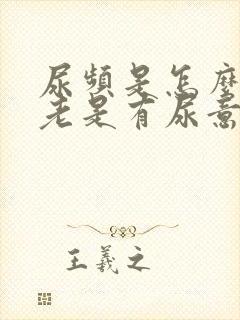 尿頻是怎麼
老是有尿意
王羲之